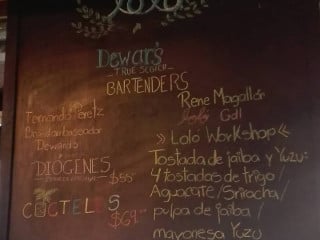 Lolo
Dewar's
TRUE SCOTCH
BARTENDERS
Fernando Peretz
Brand ambassador
Dewards
DIÓGENES
$55
COCTELES
$69.00
Rene Magallón
Gdl
» Loló Workshop »
Tostada de jaiba y Yuzu:
4 tostadas de trigo /
Aguacate / Sriracha /
pulpa de jaiba /
mayonesa Yuzu